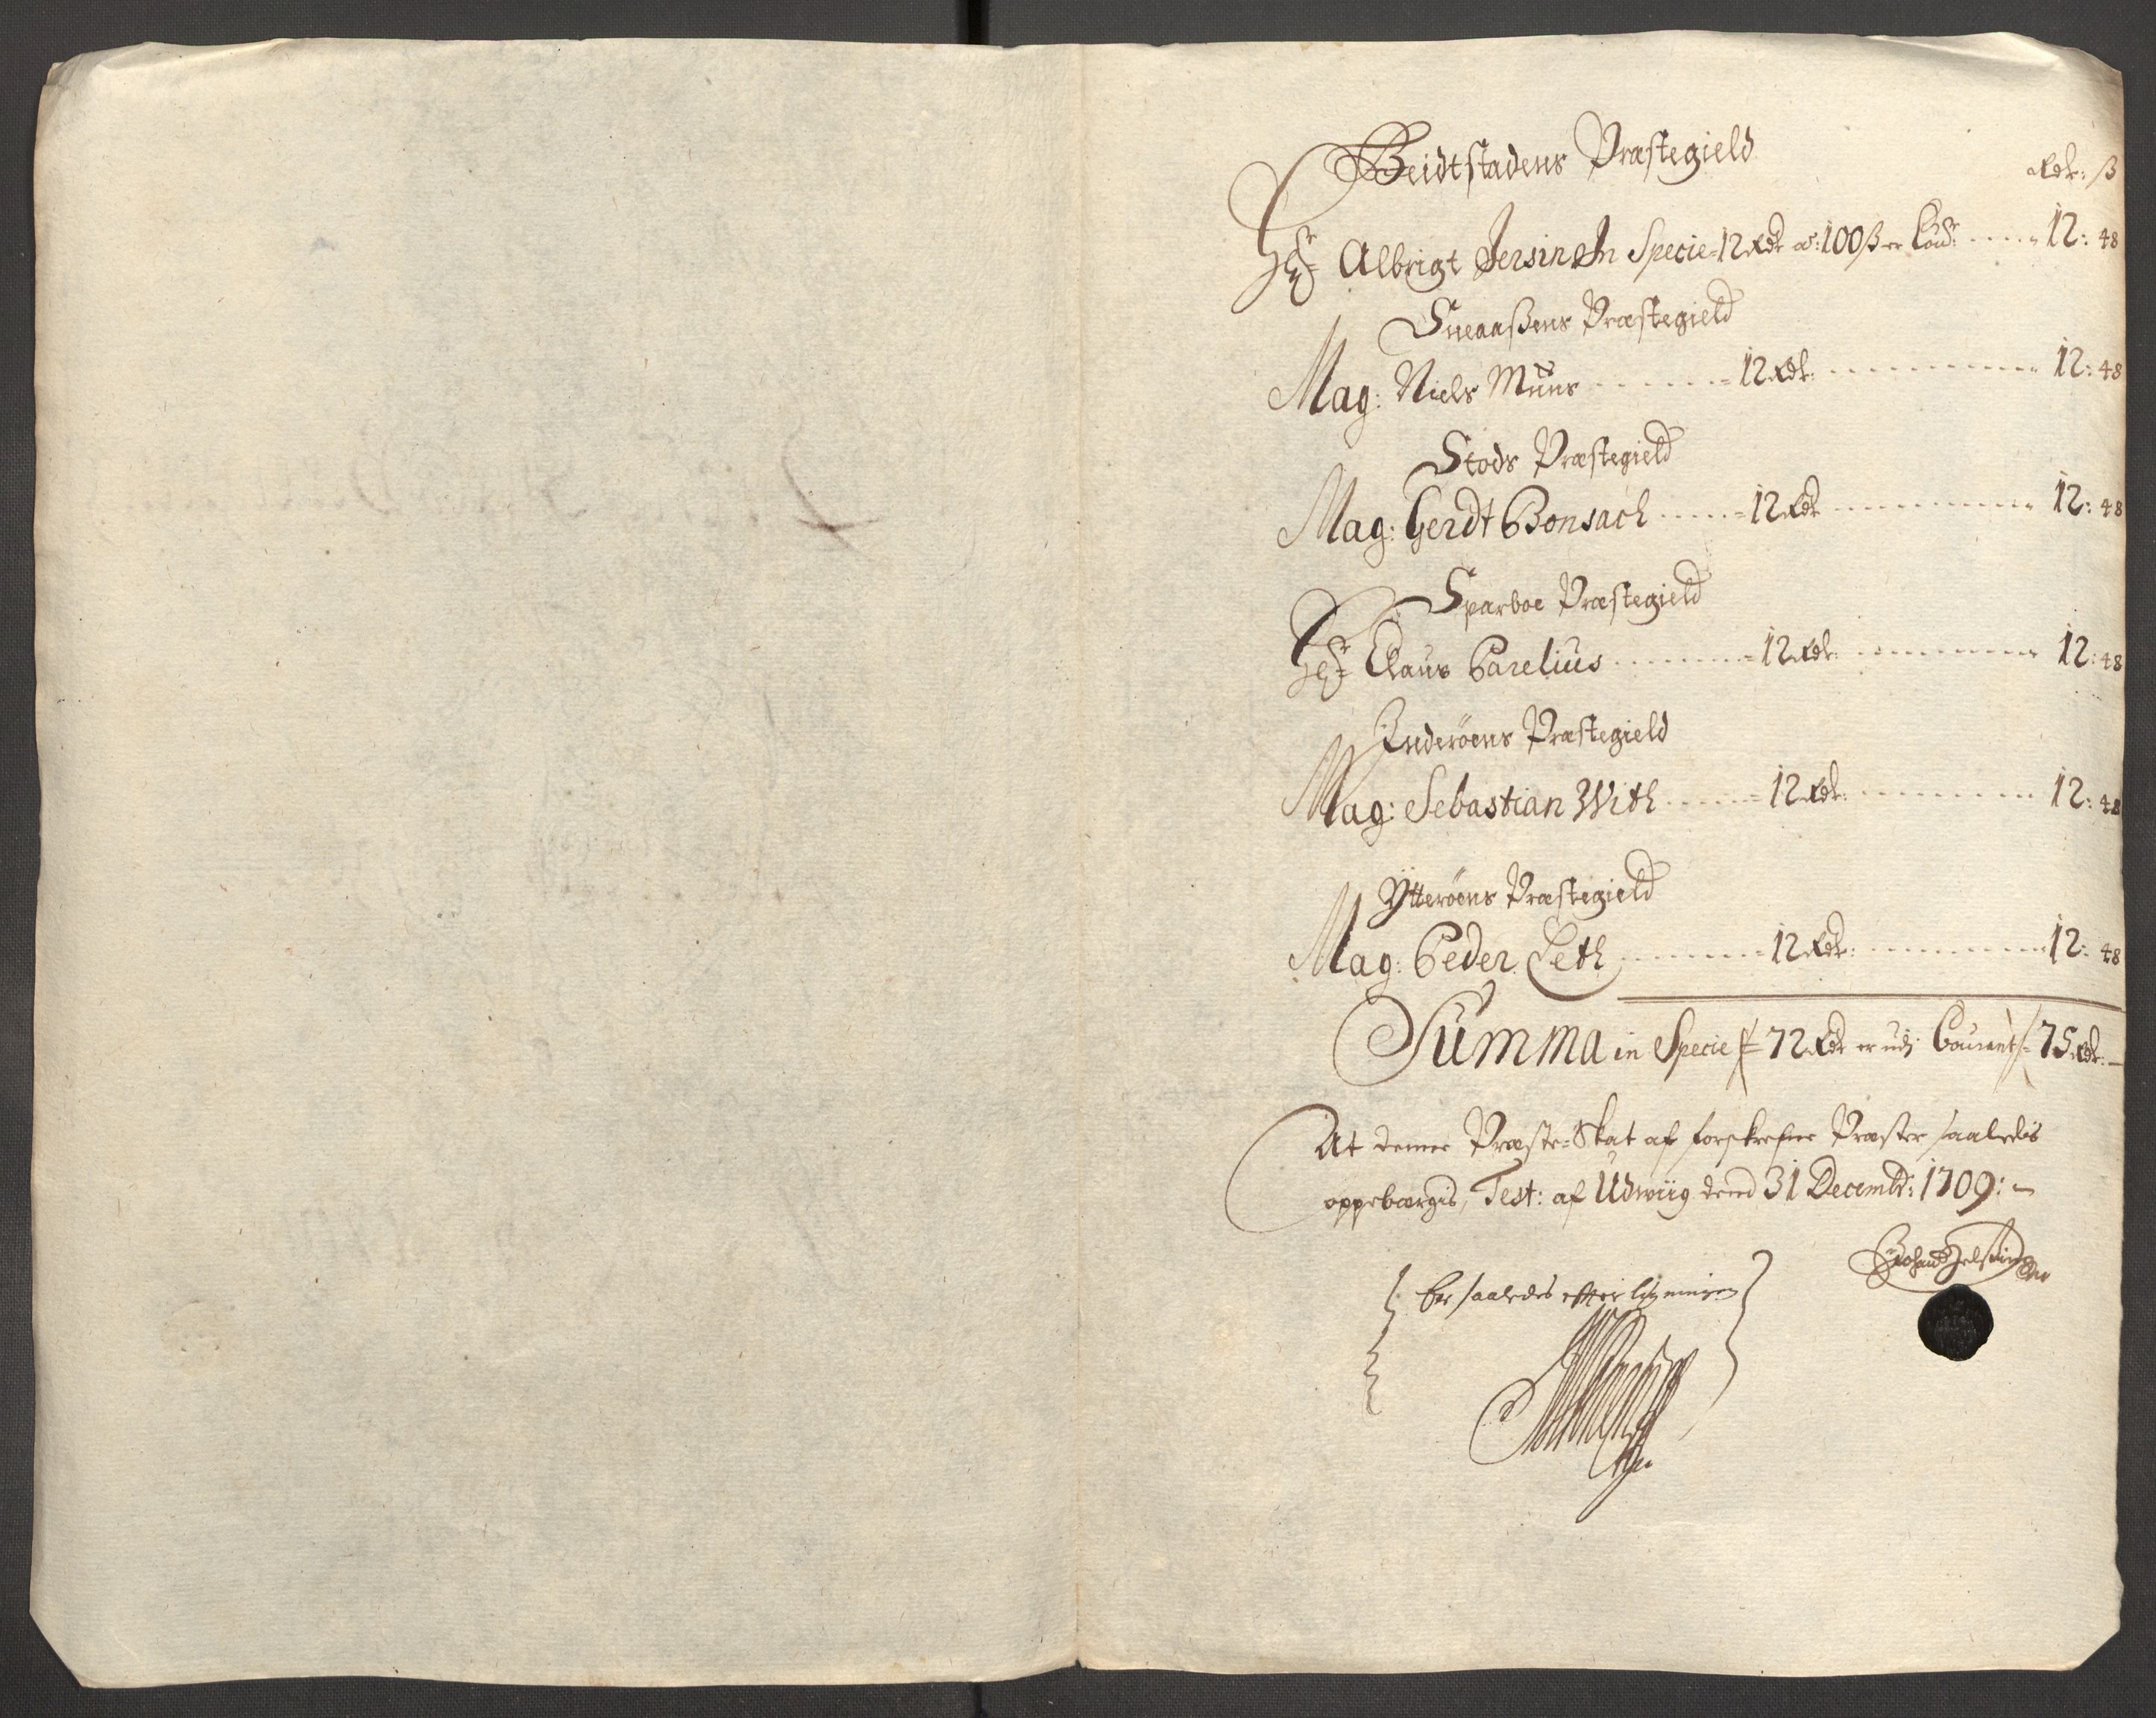 Beidtstadens Præstegield
Rdr: ß
Hr: Albrigt Jersin In Specie 12 Rdr a: 100 ß er Cour: 12: 48
Sneaaßens Præstegield
Mag: Niels Muus 12 Rdr: 12: 48
Stods Præstegield
Mag: Gerdt Bonsach 12 Rdr 12: 48
Sparboe Præstegield
Hr: Claus Parelius 12 Rdr: 12: 48
Inderöens Præstegield
Mag: Sebastian With 12 Rdr: 12: 48
Ytteröens Præstegield
Mag: Peder Leth 12 Rdr: 12: 48
Summa in Specie 72 Rdr er udj Courant 75 Rdr:
At denne Præste-Skat af forskrefne Præster saaledis
oppebærgis, Test: af Udwiig dend 31 Decembr: 1709:
Er saaledes efter ligningen